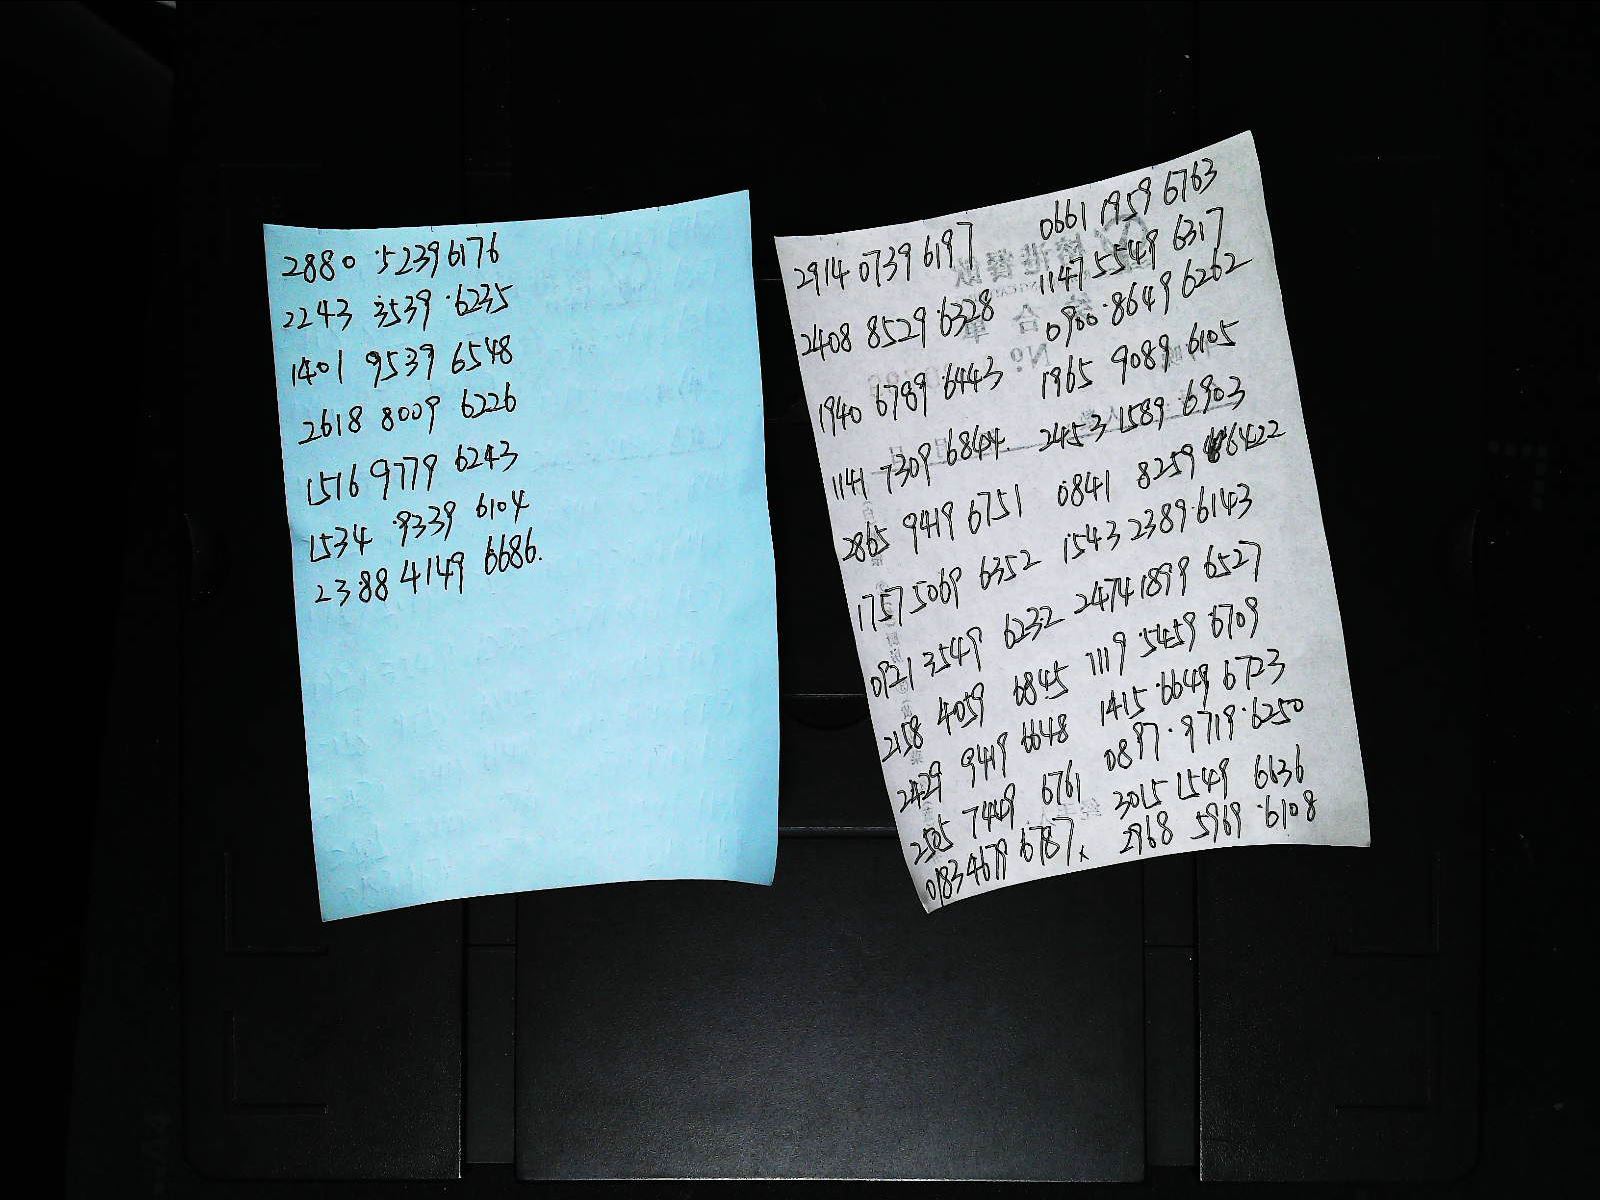 2880 52396176
2243 3539 6235
1401 9539 6548
2618 8009 6226
1516 9779 6243
1534 9339 6104
2388 4149 6686.
2914 0739 6197 0661 1959 6763
2408 8529 6328 1147 5549 6317
1940 6789 6443 0900 8649 6262
1141 7309 6804 1965 9089 6105
2865 9419 6751 2453 1589 6903
1757 5069 6352 0841 8259 6422
0921 3549 6232 1543 2389 6143
2158 4059 6845 2474 1899 6527
2429 9419 6648 1119 5459 6709
2505 7449 6761 1415 6649 6723
0183 4679 6787 0897 9719 6250
3015 1549 6636
2968 5969 6108